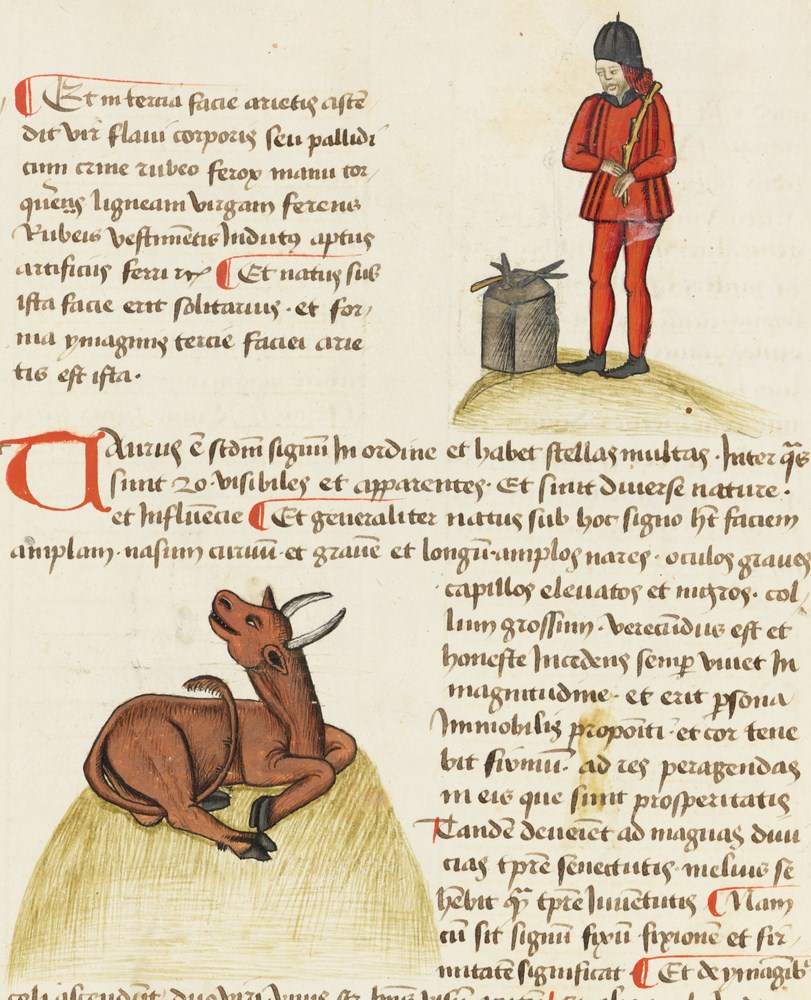 Et in tercia facie arietis asce͂
dit vir flaui corporis seu pallidi
cum crine rubeo ferox manu tor
que͂s ligneam virgam ferens
Rubeis vestime͂tis Indutꝰ aptus
artificiis ferri Et natus sub
ista facie erit solitarius · et for
ma ymaginis tercie faciei arie
tis est ista ·
TAurus e͂ scd͂m signu͂ In ordine et habet stellas multas · Inter q͂s
sunt 20 · visibiles et apparentes · Et sunt diuerse nature ·
et Influe͂cie Et generaliter natus sub hoc signo h͂t faciem
amplam · nasum curuu͂ · et graue͂ et longu͂ · amplos nares · oculos graues
capillos eleuatos et nigros · col
lum grossum · verecundus est et
honeste Incedens semꝑ viuet In
magnitudine · et erit ꝑsona
Immobilis propo͂iti · et cor tene
bit firmu͂ · ad res peragendas
in eis que sunt prosperitatis
Tande͂ deueniet ad magnas diui
cias tp͂re senectutis · melius se
he͂bit qͣ͂ tp͂re Iuuentutis Nam
cu͂ sit signu͂ fixu͂ · fixione͂ et fir
mitate͂ significat Et de ymagibꝰ
celi ascendu͂t duo viri